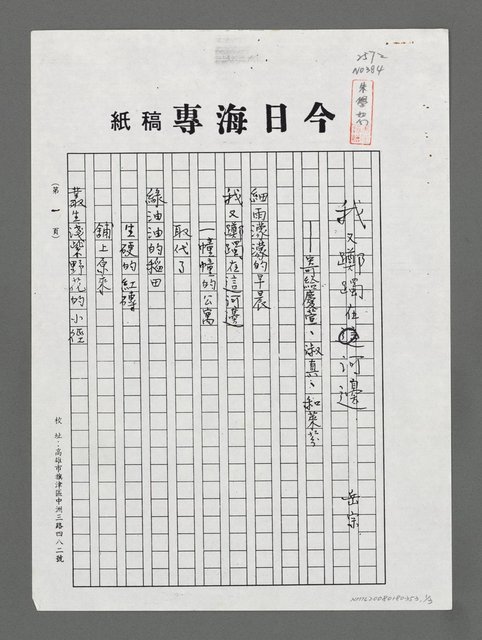 2572
NO384
朱學恕
今日海專稿紙
我又躑躅在這河邊
岳宗
——寄給慶萱、淑真、和萊芬
細雨濛濛的早晨
我又躑躅在這河邊
一幢幢的公寓
取代了
綠油油的稻田
生硬的紅磚
舖上原來
叢生淺紫野花的小徑
(第一頁)
校址:高雄市旗津區中洲三路四八二號
NMTL20080180353, 1/3